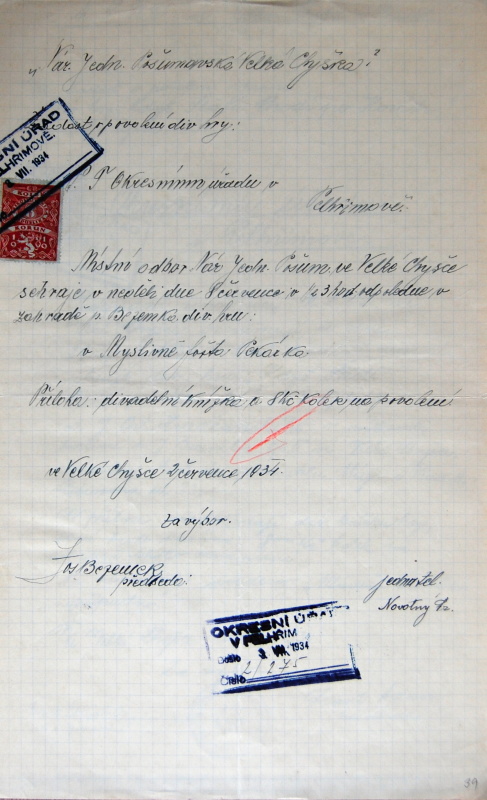 „Nár. Jedn. Pošumavská Velká Chyška“
Žádost o povolení div. hry:
P. T. Okresnímu úřadu v
Pelhřimově.
Místní odbor Nár. Jedn. Pošum. ve Velké Chyšce
sehraje v neděli dne 8 července v ½3 hod odpoledne v
zahradě p. Bezemka div. hru:
v Myslivně
Příloha: divadelní knížka a 8 Kč kolek na povolení
ve Velké Chyšce 2 července 1934.
za výbor.
Jos. Bezemek
předseda.
jednatel.
Novotný Fr.
SNÍ ÚŘAD
LHŘIMOVĚ.
3 VII. 1934
KORUN
OKRESNÍ ÚŘAD
V PELHŘIM
Došlo 3. VII. 1934
Číslo 2/275
39